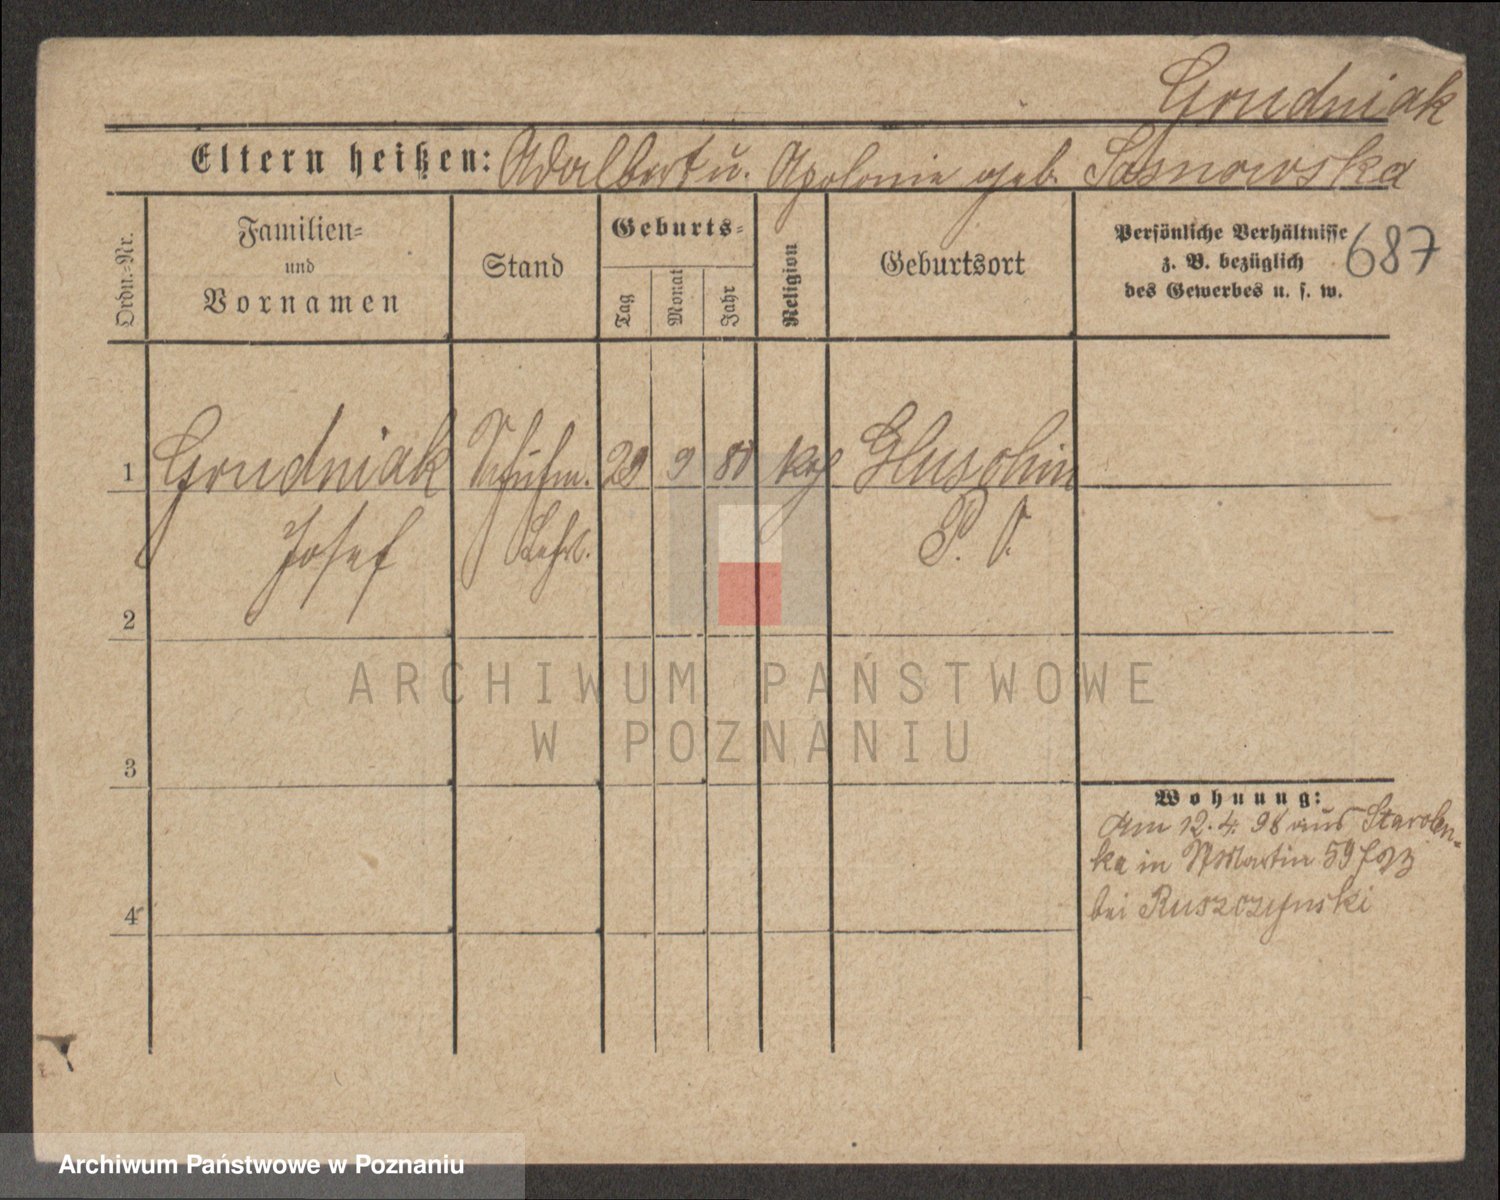 Grudniak
Eltern heißen: Adalbert u. Apolonie geb. Sosnowska
Ordn.-Nr.
Familien-
und
Vornamen
Stand
Geburts-
Tag
Monat
Jahr
Religion
Geburtsort
Persönliche Verhältnisse
z. B. bezüglich
des Gewerbes u. s. w.
687
1 Grudniak Schuhm. 9 kath Gluschin
Josef Lehrl. P. O.
2
3
4
Wohnung:
Am 12. 4. 98 aus Starolen-
ka in St Martin 59
bei Ruszczynski
ARCHIWUM PAŃSTWOWE
W POZNANIU
Archiwum Państwowe w Poznaniu